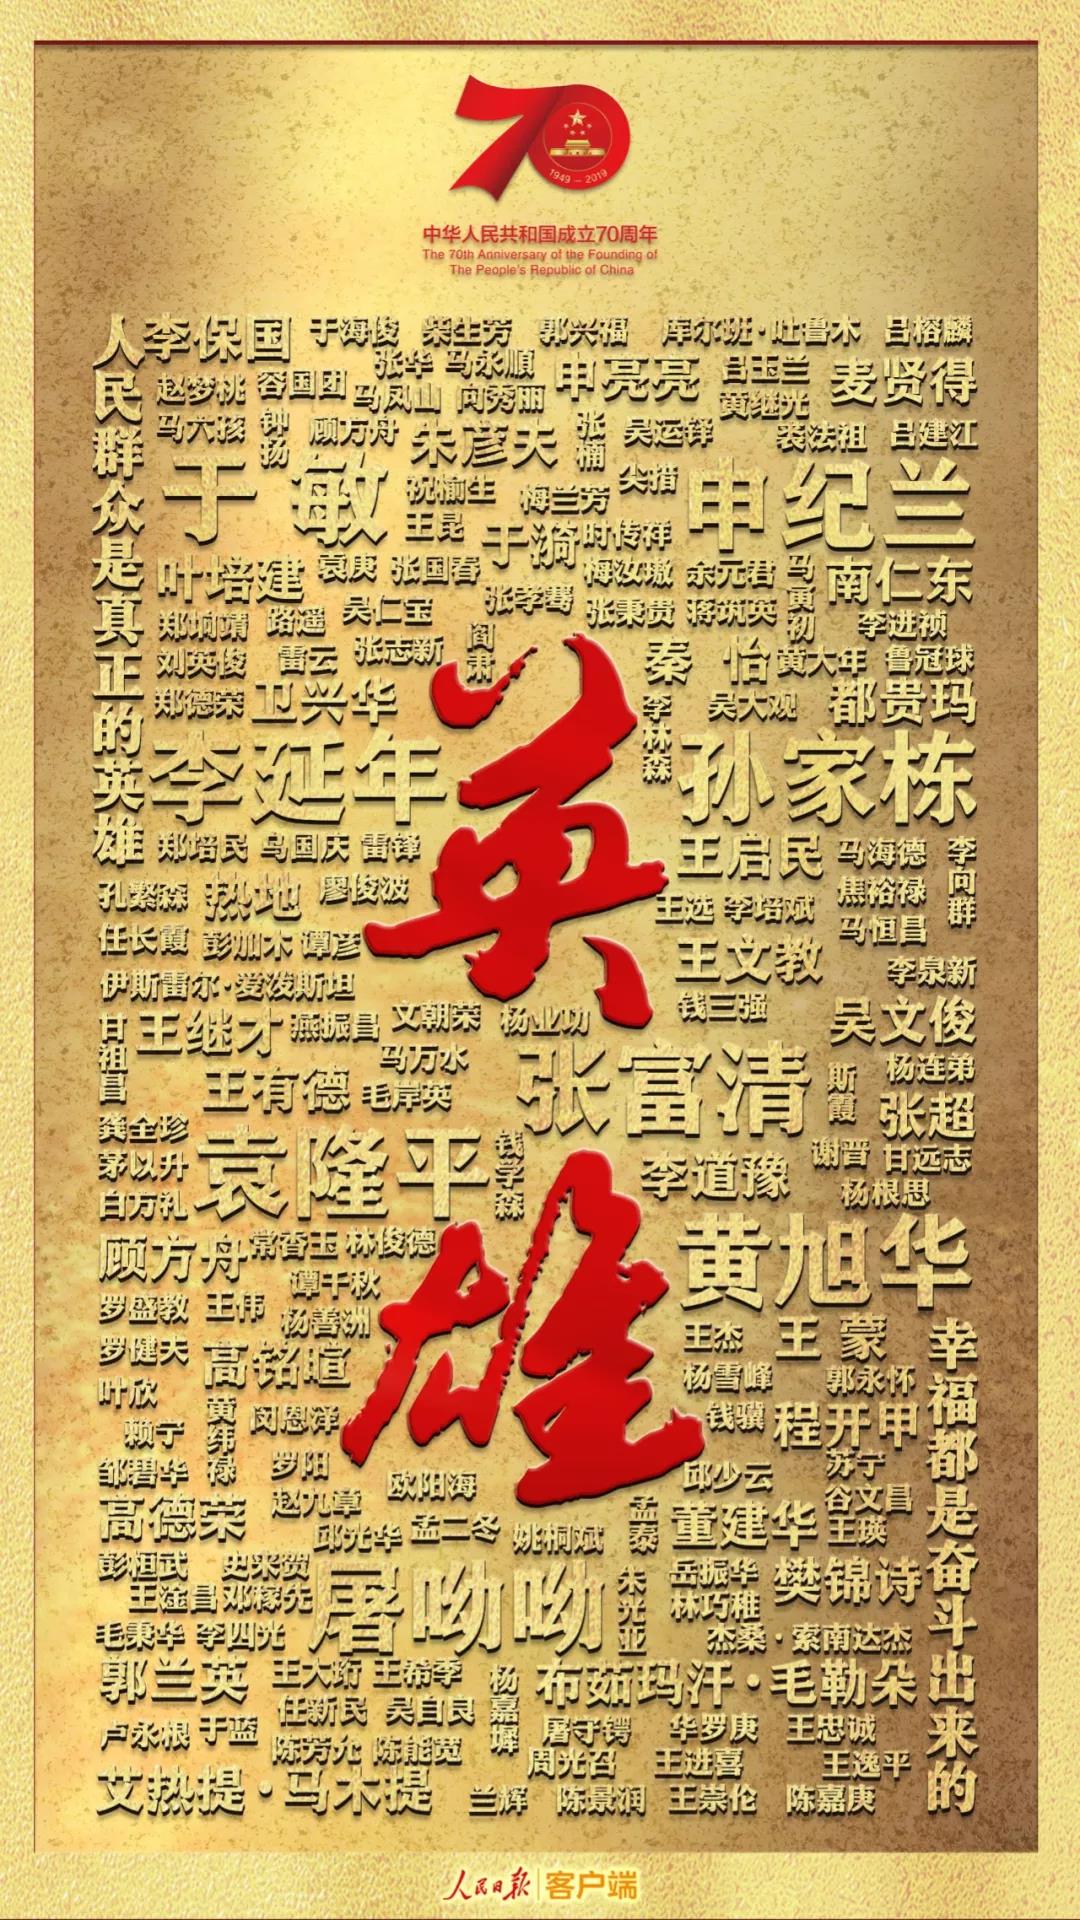 70
1949 - 2019
中华人民共和国成立70周年
The 70th Anniversary of the Founding of
The People's Republic of China
人民群众是真正的英雄
李保国 于海俊 柴生芳 郭兴福 库尔班·吐鲁木 吕榕麟
张华 马永順 申亮亮 吕玉兰 麦贤得
赵梦桃 容国团 马凤山 向秀丽 黄继光
马六孩 钟扬 顾方舟 朱彦夫 张楠 吴运铎 裘法祖 吕建江
于敏 祝榆生 梅兰芳 尖措 申纪兰
王昆 于漪 时传祥
叶培建 袁庚 张国春 梅汝璈 余元君 马勇初 南仁东
郑垧靖 路遥 吴仁宝 张孝骞 张秉贵 蒋筑英 李进祯
刘英俊 雷云 张志新 阎肃 秦怡 黄大年 鲁冠球
郑德荣 卫兴华 李林森 吴大观 都贵玛
李延年 孙家栋
郑培民 乌国庆 雷锋 王启民 马海德 李向群
孔繁森 热地 廖俊波 王选 李培斌 焦裕禄
任长霞 彭加木 谭彦 王文教 马恒昌
伊斯雷尔·爱泼斯坦 李泉新
甘祖昌 王继才 燕振昌 文朝荣 杨业功 钱三强 吴文俊
马万水 张富清 斯霞 杨连弟
王有德 毛岸英 张超
龚全珍 袁隆平 钱学森 李道豫 谢晋 甘远志
茅以升 杨根思
白方礼 黄旭华
顾方舟 常香玉 林俊德
谭千秋
罗盛教 王伟 杨善洲 王杰 王蒙
罗健夫 高铭暄 杨雪峰 郭永怀
叶欣 黄纬禄 闵恩泽 钱骥 程开甲
赖宁 罗阳 邱少云 苏宁
邹碧华 欧阳海 谷文昌
高德荣 赵九章 邱光华 孟二冬 姚桐斌 孟泰 董建华 王瑛
彭桓武 史来贺 屠呦呦 朱光亚 岳振华 樊锦诗
王淦昌 邓稼先 林巧稚
毛秉华 李四光 杰桑·索南达杰
郭兰英 王大珩 王希季 杨嘉墀 布茹玛汗·毛勒朵
任新民 吴自良
卢永根 于蓝 陈芳允 陈能宽 屠守锷 华罗庚 王忠诚
周光召 王进喜 王逸平
艾热提·马木提 兰辉 陈景润 王崇伦 陈嘉庚
英雄
幸福都是奋斗出来的
人民日报 客户端